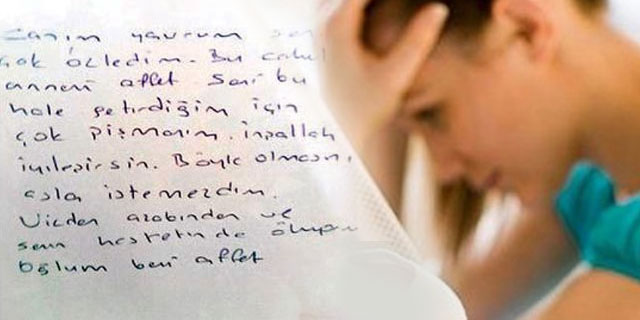 Canım yavrum seni
çok özledim. Bu cahil
anneni affet seni bu
hale getirdiğim için
çok pişmanım. inşallah
iyileşirsin. Böyle olmasını
asla istemezdim.
Vicdan azabından ve
senin hasretinde
oğlum beni affet